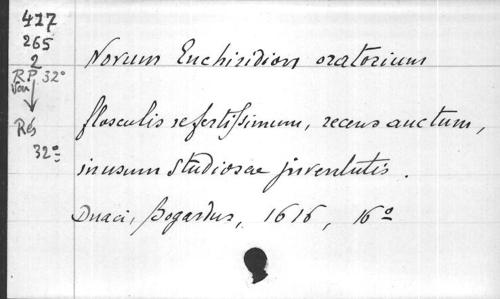 417
265
2
RP 32°
Rés
32°
Novum Enchiridion oratorium
flosculis refertissimum, recens auctum,
in usum studiosae juventutis.
Duaci, Bogardus, 1616, 16°